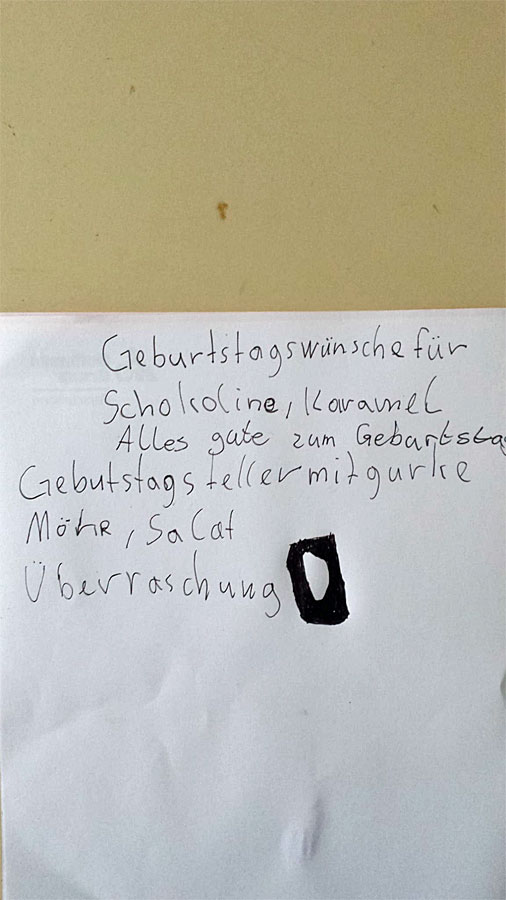 Geburtstagswünsche für
Schokoline, Karamel
Alles gute zum Gebartstag
Gebutstagstellermitgurke
Möhr, Salat
Überraschung